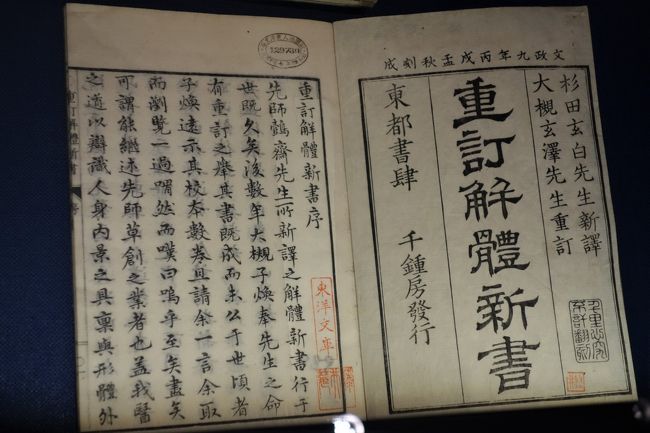 文政九年丙戌孟秋刻成
杉田玄白先生新譯
大槻玄澤先生重訂
重訂解體新書
東都書肆 千鍾房發行
千里必究
不許翻刻
重訂解體新書序
先師鷧齋先生所新譯之解體新書行于
世既久矣後數年大槻子煥奉先生之命
有重訂之擧其書既成而未公于世頃者
子煥遠示其校本數卷且請余一言余取
而瀏覽一過喟然而嘆曰嗚乎至矣盡矣
可謂能繼述先師草創之業者也蓋我醫
之道以辯識人身内景之具稟與形體外
重訂解體新書 序
東洋文庫
129739